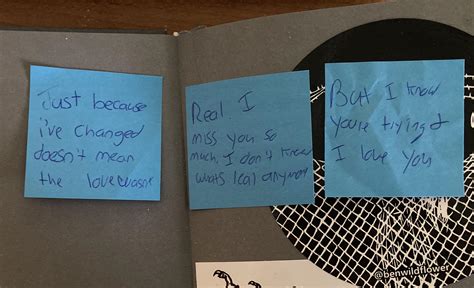 Just because
i've changed
doesn't mean
the love wasn't
Real I
miss you so
much, I don't know
whats leal anymore
But I know
you're trying &
I love you
@benwildflower